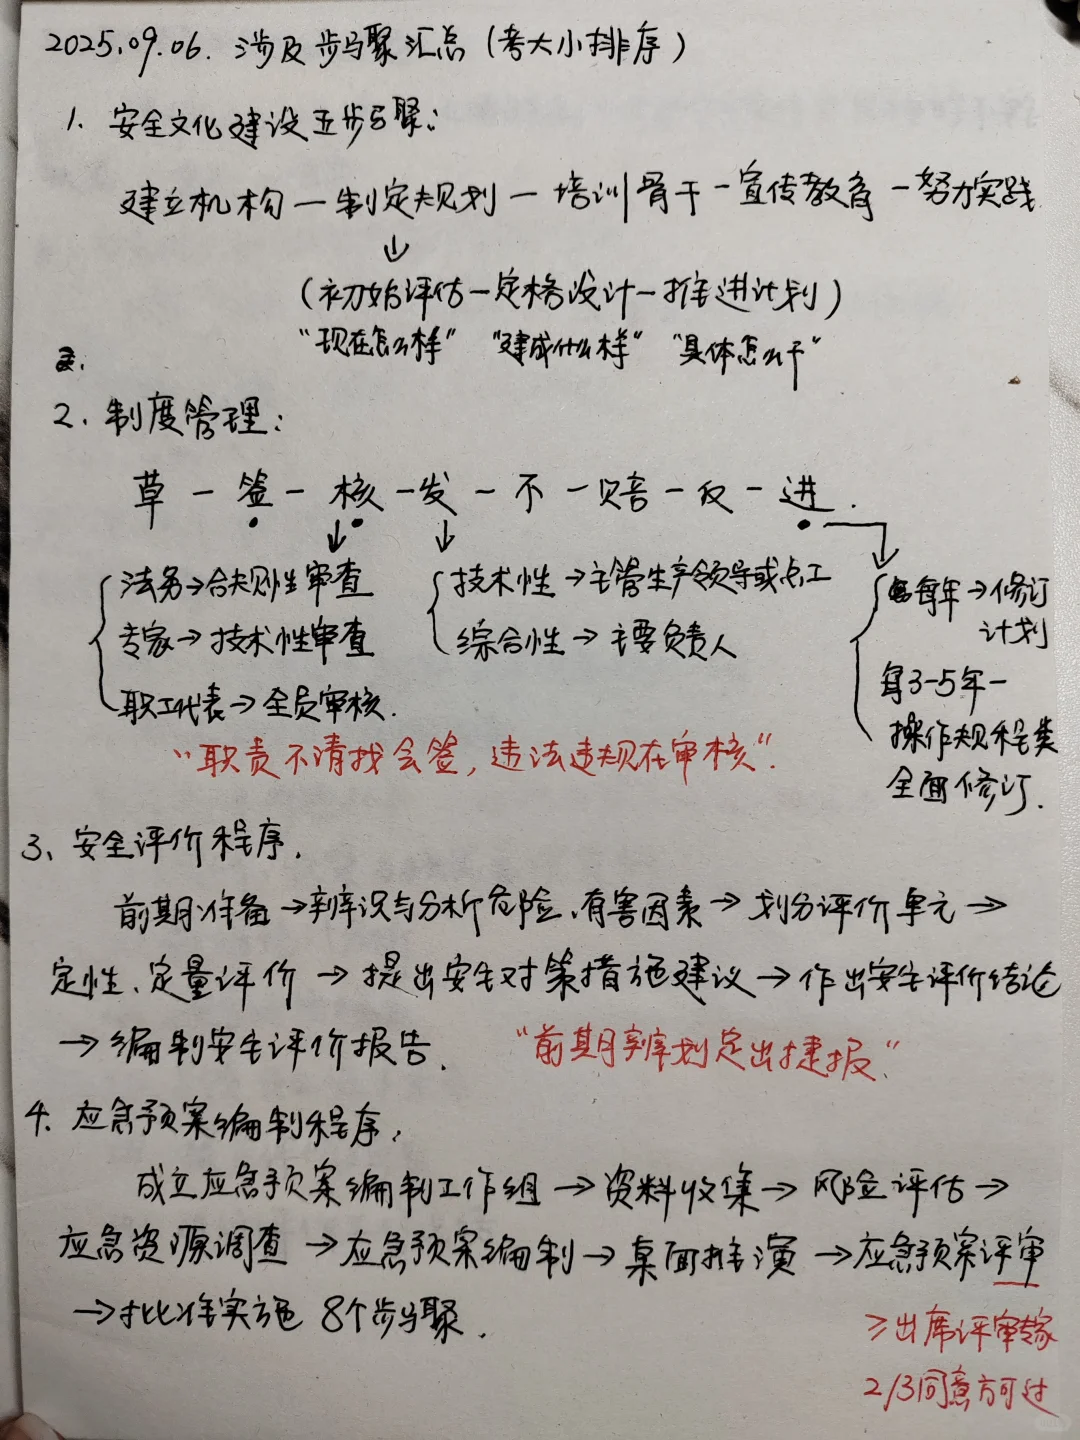 2025.09.06. 涉及步骤聚汇总（考大小排序）
1. 安全文化建设五步骤：
建立机构—制定规划—培训骨干—宣传教育—努力实践
↓
（初始评估—定格设计—推进计划）
“现在怎么样” “建成什么样” “具体怎么干”
2. 制度管理：
草—签—核—发—不—赔—反—进.
法务→合规性审查 技术性→主管生产领导或总工 每年→修订
计划
专家→技术性审查 综合性→主要负责人
每3-5年—
职工代表→全员审核.
操作规程类
“职责不清找会签, 违法违规在审核”.
全面修订.
3、安全评价程序.
前期准备→辨识与分析危险、有害因素→划分评价单元→
定性、定量评价→提出安全对策措施建议→作出安全评价结论
→编制安全评价报告. “前期辨划定出捷报.”
4. 应急预案编制程序.
成立应急预案编制工作组→资料收集→风险评估→
应急资源调查→应急预案编制→桌面推演→应急预案评审
→批准实施 8个步骤.
≥出席评审专家
2/3同意方可过